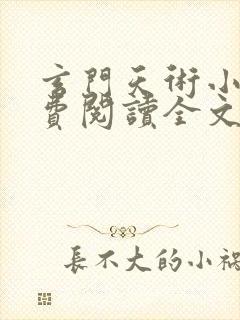 玄門天術小
費閱讀全文
長不大的小禍